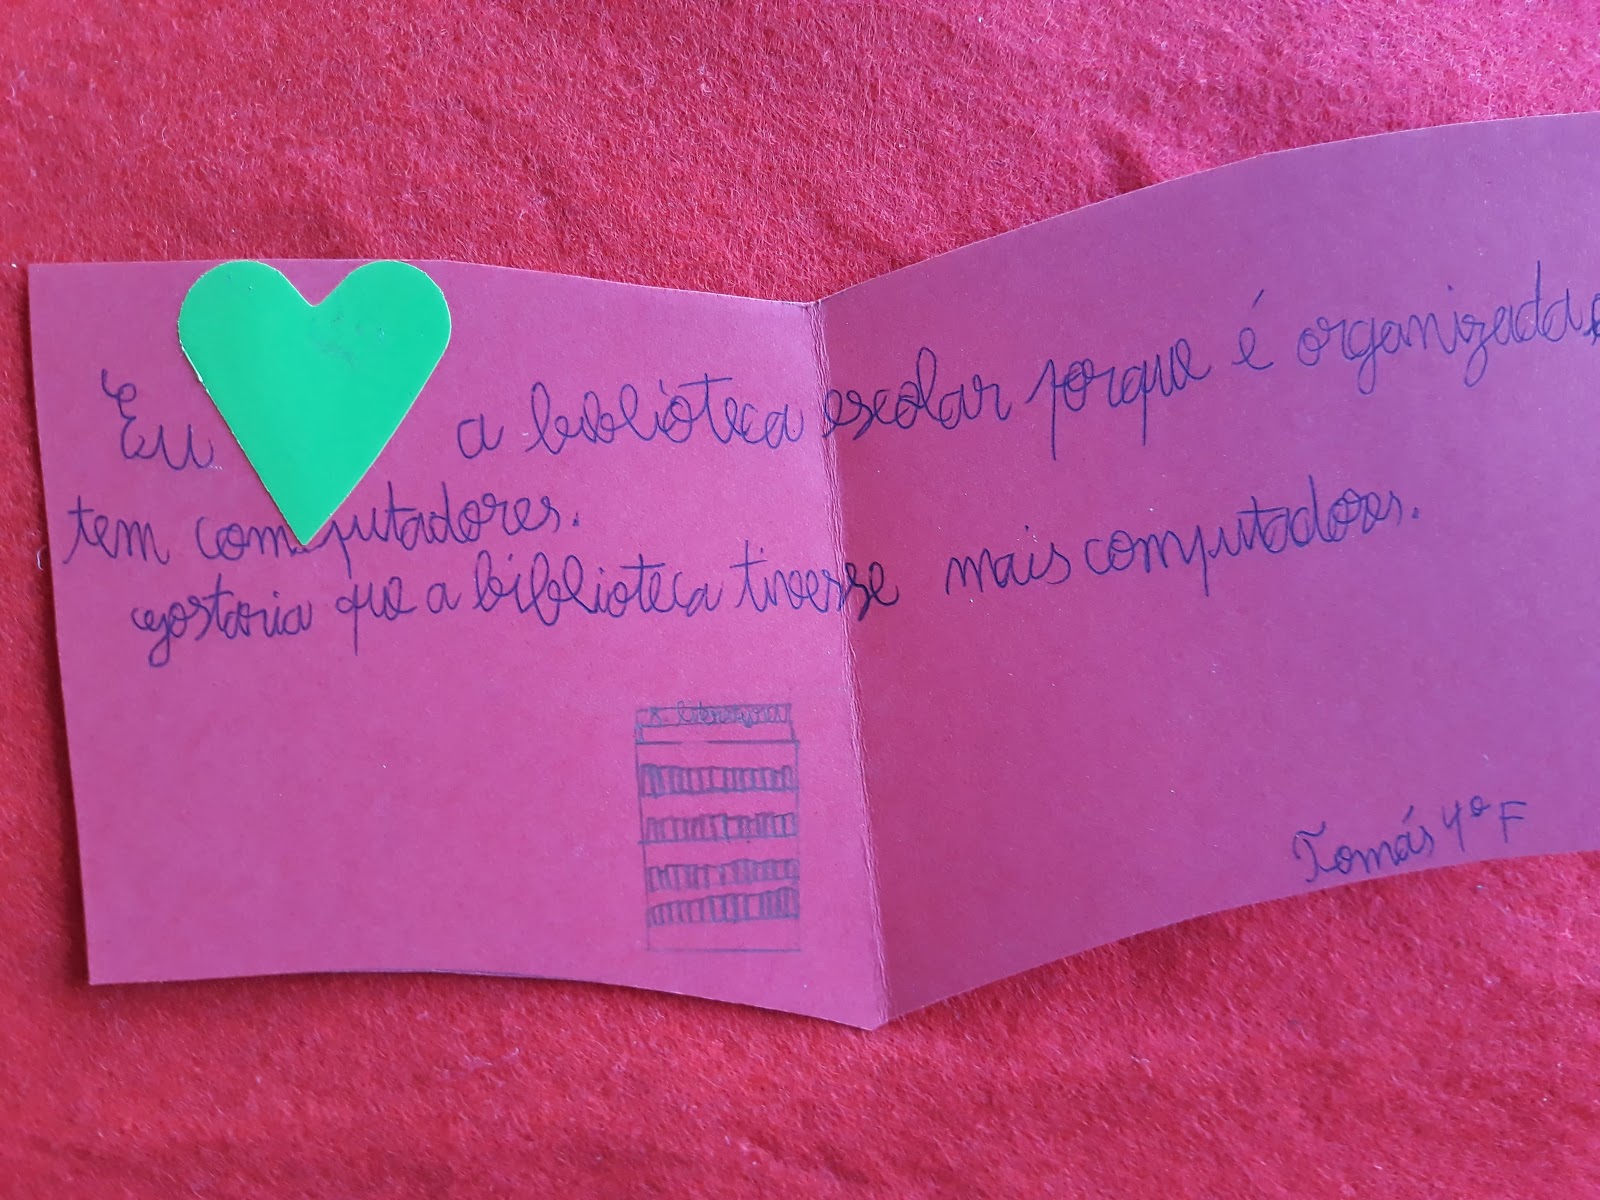 Eu a biblióteca escolar porque é organizada e
tem computadores.
gostaria que a biblioteca tivesse mais computadores.
Tomás 4º F